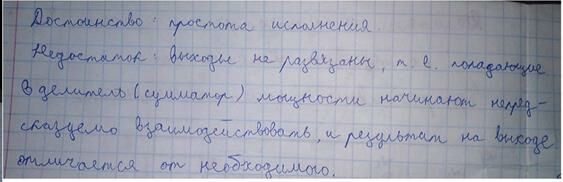 Достоинство: простота исполнения.
Недостаток: выходы не развязаны, т. е. попадающие
в делитель (сумматор) мощности начинают непред-
сказуемо взаимодействовать, и результат на выходе
отличается от необходимого.